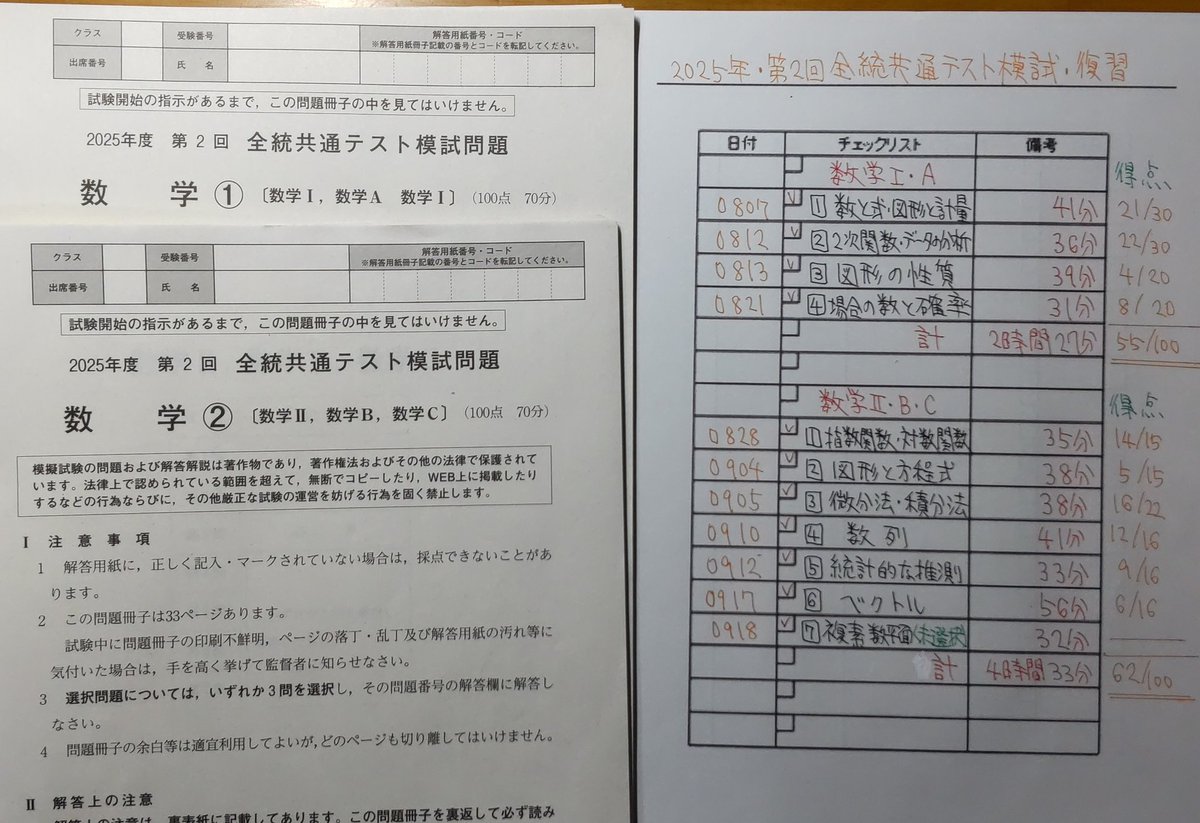 クラス 受験番号 解答用紙番号・コード
※解答用紙冊子記載の番号とコードを転記してください。
出席番号 氏 名
試験開始の指示があるまで，この問題冊子の中を見てはいけません。
2025年度 第2回 全統共通テスト模試問題
数 学 ① 〔数学Ⅰ，数学A 数学Ⅰ〕（100点 70分）
クラス 受験番号 解答用紙番号・コード
※解答用紙冊子記載の番号とコードを転記してください。
出席番号 氏 名
試験開始の指示があるまで，この問題冊子の中を見てはいけません。
2025年度 第2回 全統共通テスト模試問題
数 学 ② 〔数学Ⅱ，数学B，数学C〕（100点 70分）
模擬試験の問題および解答解説は著作物であり，著作権法およびその他の法律で保護されて
います。法律上で認められている範囲を超えて，無断でコピーしたり，WEB上に掲載したり
するなどの行為ならびに，その他厳正な試験の運営を妨げる行為を固く禁止します。
Ⅰ 注意事項
1 解答用紙に，正しく記入・マークされていない場合は，採点できないことがあ
ります。
2 この問題冊子は33ページあります。
試験中に問題冊子の印刷不鮮明，ページの落丁・乱丁及び解答用紙の汚れ等に
気付いた場合は，手を高く挙げて監督者に知らせなさい。
3 選択問題については，いずれか3問を選択し，その問題番号の解答欄に解答し
なさい。
4 問題冊子の余白等は適宜利用してよいが，どのページも切り離してはいけません。
Ⅱ 解答上の注意
解答上の注意は，裏表紙に記載してあります。この問題冊子を裏返して必ず読み
2025年・第2回全統共通テスト模試・復習
日付 チェックリスト 備考
数学Ⅰ・A 得点
0807 1 数と式・図形と計量 41分 21/30
0812 2 2次関数・データの分析 36分 22/30
0813 3 図形の性質 39分 4/20
0821 4 場合の数と確率 31分 8/20
計 2時間27分 55/100
数学Ⅱ・B・C 得点
0828 1 指数関数・対数関数 35分 14/15
0904 2 図形と方程式 38分 5/15
0905 3 微分法・積分法 38分 16/22
0910 4 数列 41分 12/16
0912 5 統計的な推測 33分 9/16
0917 6 ベクトル 56分 6/16
0918 7 複素数平面(未選択) 32分
計 4時間33分 62/100